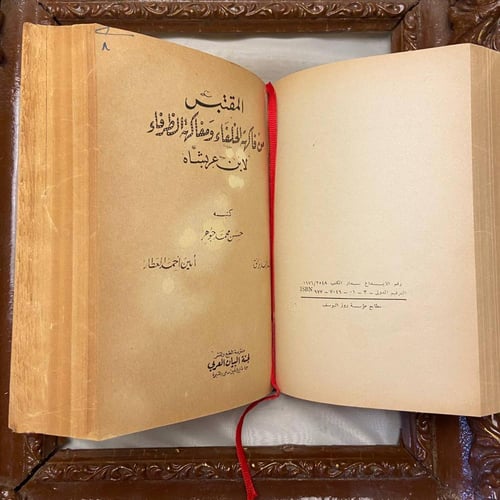 ٨
المقتبس
من فاكهة الخلفاء ومفاكهة الظرفاء
لابن عربشاه
كتبه
حسن محمد جوهر
أمين أحمد العطار
ملتزمة الطبع والنشر
لجنة البيان العربي
رقم الإيداع بدار الكتب ١٩٧٦/٢٥٤٩
الترقيم الدولي - ٣ - ٠١ - ٧٠٤٦ - ٩٧٧ ISBN
مطابع مؤسسة روز اليوسف